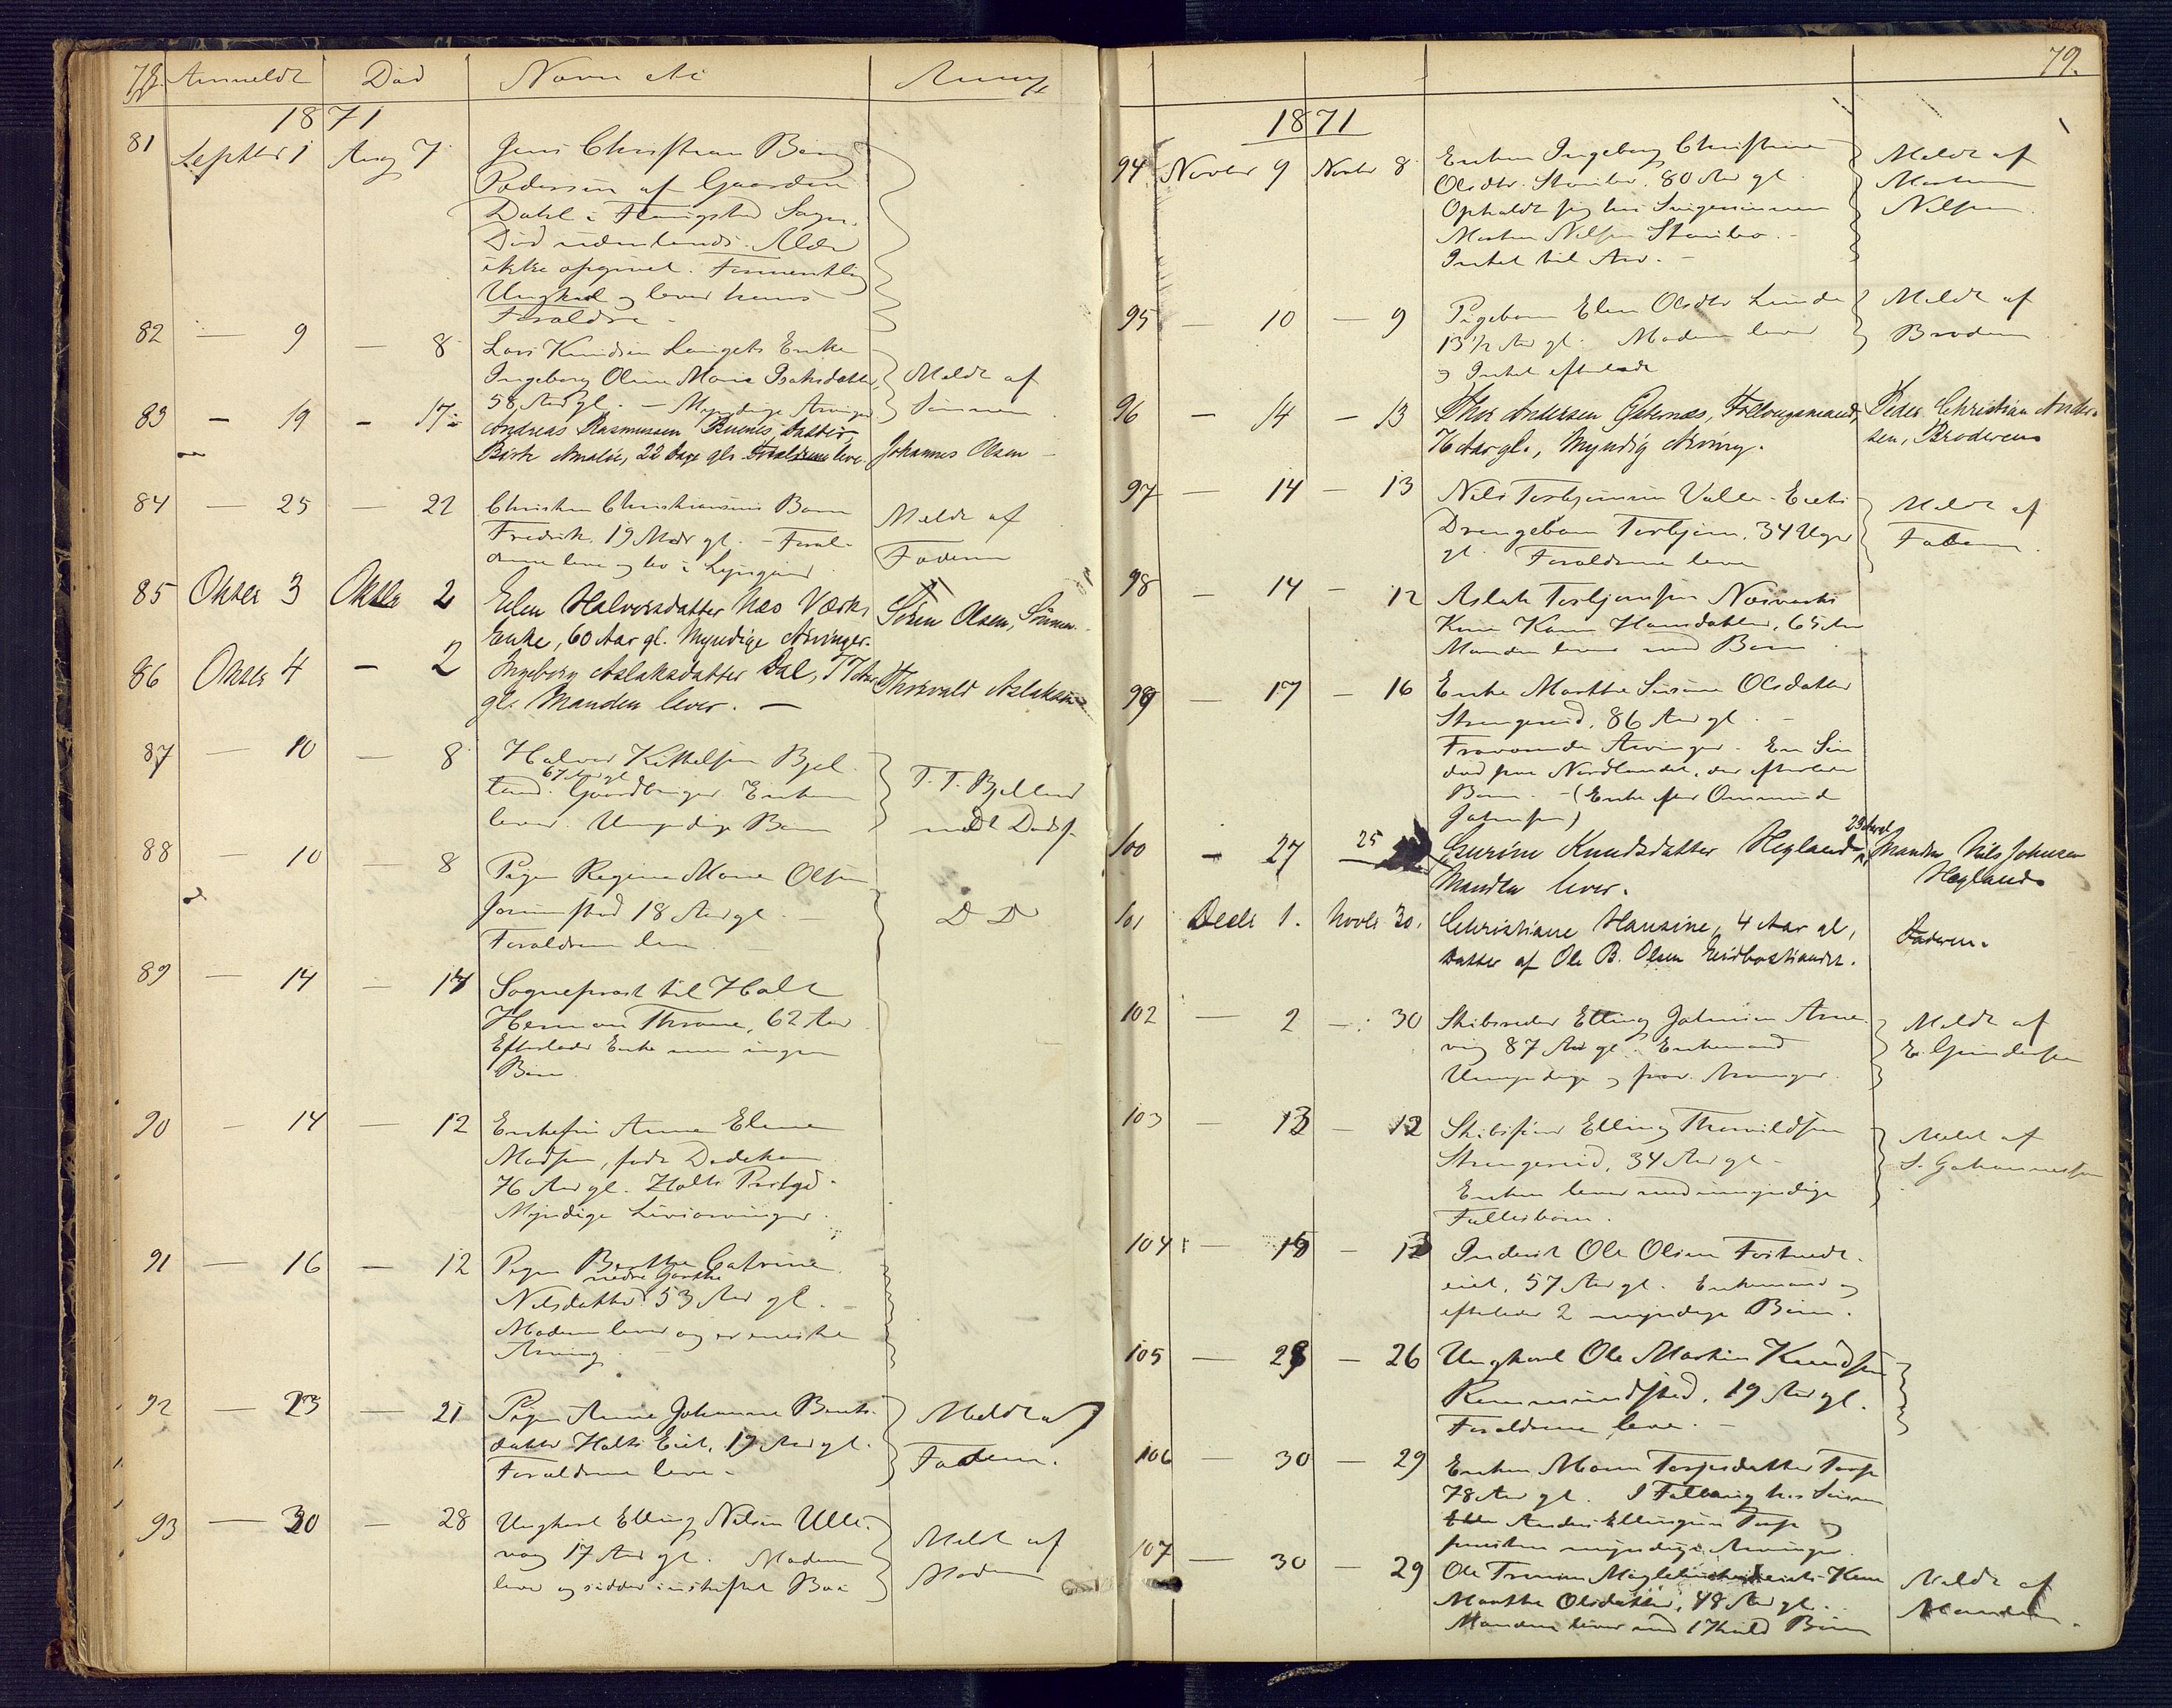 78. Anmeldt Død Navn etc Anm
1871
81 Septbr 1 Aug 7 Jens Christian Berg
Pedersen af Gaarden
Dahl i Sogn.
Død udenlands. Alder
ikke opgivet. Formentlig
Ungkarl og lever hans
Forældre -
82 — 9 — 8 Lars Knudsen Enke
Ingeborg Oline Marie Isaksdatter Meldt af
58 Aar gl. - Myndige Arvinger Sønnen
83 - 19 - 17 Andreas Rasmussen Buenes datter,
Birte Amalie, 22 Dage gl. Forældrene leve. Johannes Olsen -
84 — 25 — 22 Christen Christiansens Barn Meldt af
Fredrik, 19 Mdr gl. - Foræl- Faderen
drene leve og bo i
85 Oktbr 3 Oktbr 2 Ellen Halvorsdatter Næs Værk, Søren Olsen, Sønnen.
Enke, 60 Aar gl. Myndige Arvinger.
86 Oktbr 4 - 2 Ingeborg Aslaksdatter Dal, 77 Aar Thorvald Aslaksen
gl. Manden lever. -
87 — 10 — 8 Halvor Kittelsen Bjel-
67 Aar gl T. T. Bjelland
land. Gaardbruger Enken
lever. Umyndige Børn
88 — 10 — 8 Pigen Regine Marie Olsen
18 Aar gl. - D D
Forældrene leve
89 — 14 — 14 Sogneprest til Holt
Herman Thrane, 62 Aar
Efterlader Enke men ingen
Børn
90 — 14 — 12 Enkefru Anne Elene
Madsen, født Dedekam
76 Aar gl. Holts Prstgd.
Myndige Livsarvinger.
91 — 16 — 12 Pigen Berthe Catrine
nedre Goderstad
Nilsdatter 53 Aar gl. -
Moderen lever og er eneste
Arving -
92 — 23 — 21 Pigen Anne Johanne Bents- Meldt af
datter Holts Eiet, 19 Aar gl. Faderen.
Forældrene leve -
93 — 30 — 28 Ungkarl Elling Nilsen Ulle- Meldt af
vaag 17 Aar gl. Moderen Moderen
lever og sidder i uskiftet Bo
79.
1871
94 Novbr 9 Novbr 8 Enken Ingeborg Christine Meldt af
Olsdtr. Stanebo. 80 Aar gl Morten
Opholdt sig hos Svigersønnen Nilsen
Morten Nilsen Stanebo. -
Intet til Arv. -
95 — 10 — 9 Pigebarn Elen Olsdtr Lunde Meldt af
13 1/2 Aar gl. Moderen lever Broderen
og Intet efterladt
96 - 14 - 13 Thor Andersen Gjernæs, Follougsmand, Peder Christian Ander-
76 Aar gl., Myndig Arving. sen, Broderen
97 — 14 — 13 Nils Torbjørnsen Valle Eiets Meldt af
Drengebarn Torbjørn, 34 Uger Faderen
gl. Forældrene leve
98 — 14 — 12 Aslak Torbjørnsen Næsværks
Kone Karen Hansdatter, 65 Aar
Manden lever med Børn
99 — 17 — 16 Enke Marthe Olsdatter
Strengereid, 86 Aar gl. -
Fraværende Arvinger. En Søn
død paa Nordlandet, der efterlod
Børn. - (Enke efter Ommund
Jahnsen)
100 - 27 25 Gurine Knudsdatter Hegland, 23 Aar gl Manden Nils Johnsen
Manden lever. Hegland
101 Decbr 1. Novbr 30. Christiane Hansine, 4 Aar gl., Faderen.
Datter af Ole B. Olsen Eidbostrandet.
102 — 2 — 30 Skibsreder Elling Jahnsen Arne- Meldt af
vig 87 Aar gl. Enkemand E. Gundersen
Umyndige og fravr. Arvinger
103 — 13 — 12 Skibsfører Elling Thorvildsen Meldt af
Strengereid, 34 Aar gl - S. Johannessen
Enken lever med umyndige
Fællesbørn.
104 — 15 — 13 Inderst Ole Olsen Fostvedt-
eiet, 57 Aar gl. Enkemand og
efterlader 2 myndige Børn.
105 — 28 — 26 Ungkarl Ole Martin Knudsen
19 Aar gl.
Forældrene leve. -
106 — 30 — 29 Enken Maren Terjesdatter Torp
78 Aar gl. I Follaug hos Sønnen
Anders Ellingsen Torp og
forøvrigt myndige Arvinger.
107 — 30 — 29 Ole Kone Meldt af
Marthe Olsdatter, 48 Aar gl. - Manden.
Manden lever med 1 Kuld Børn